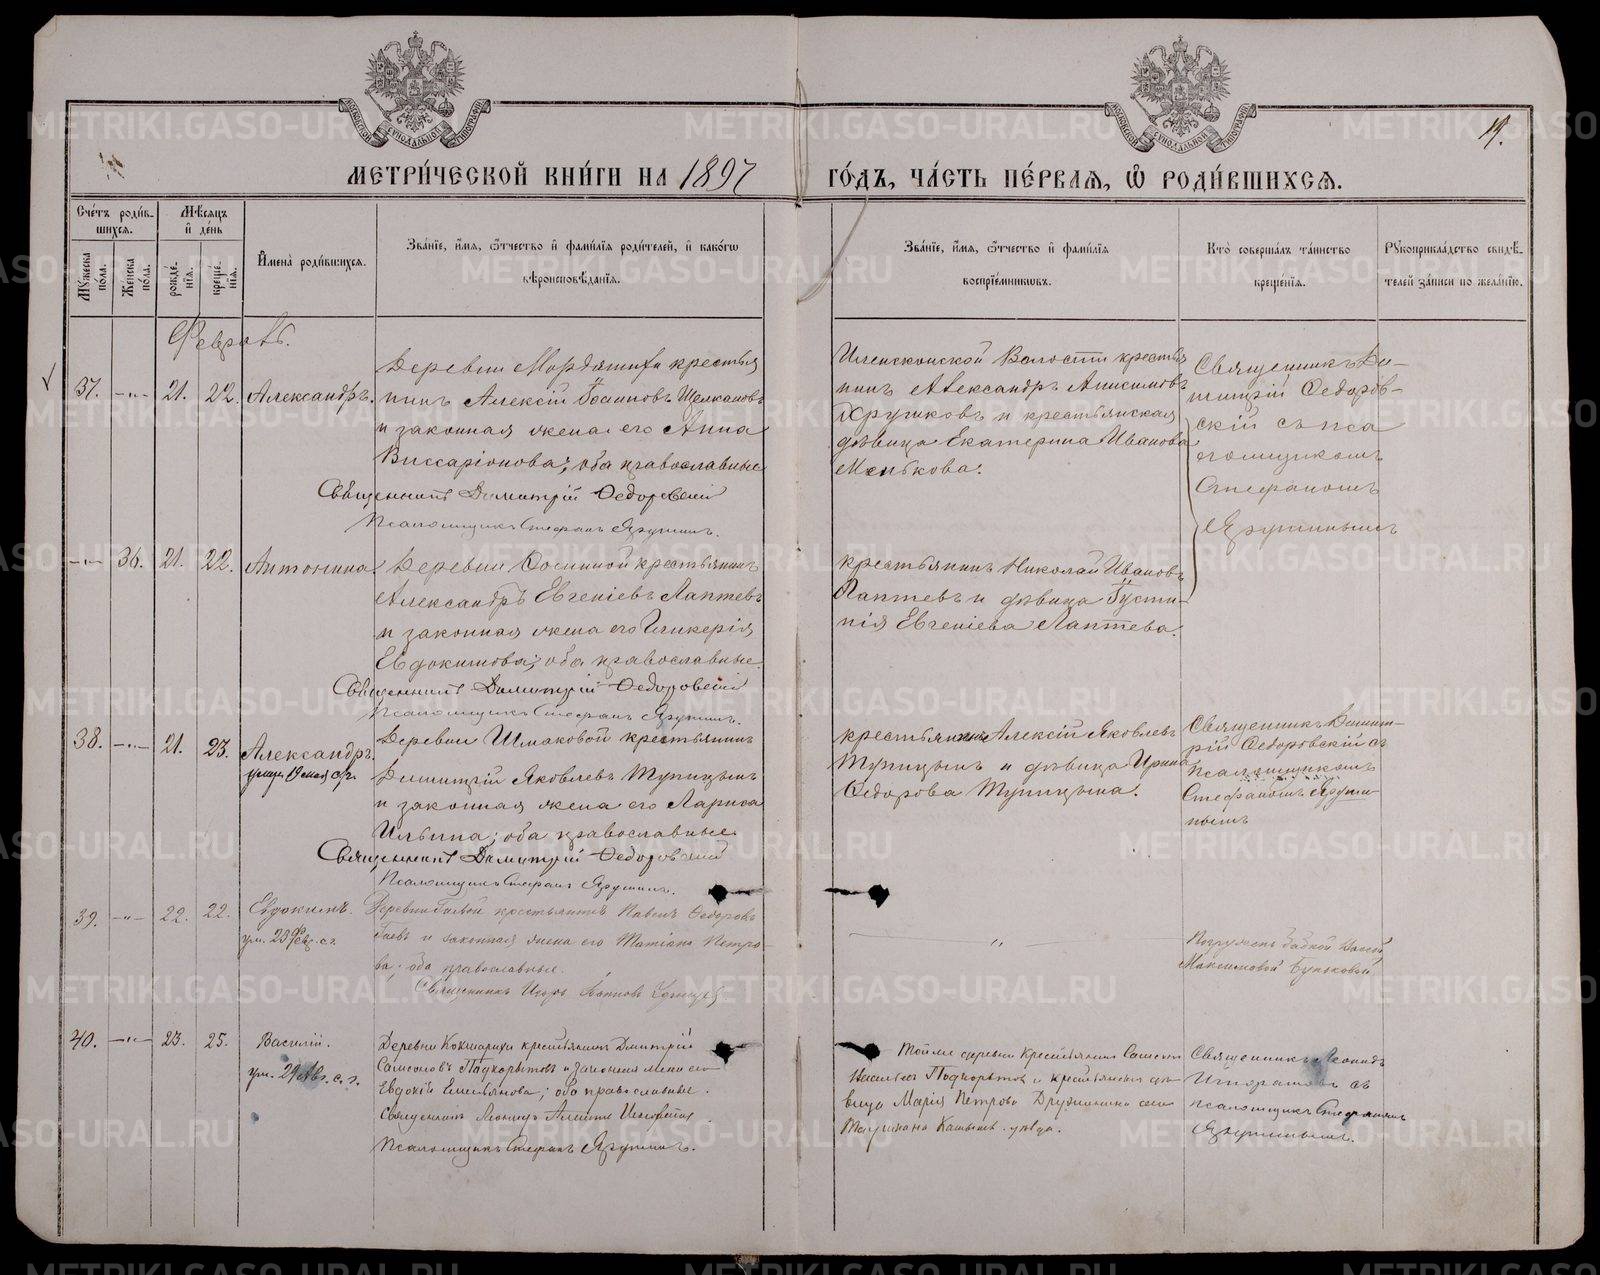 МЕТРИ́ЧЕСКОЙ КНИ́ГИ НА 1897 ГО́ДЪ, ЧА́СТЬ ПЕ́РВАЯ, Ѡ РОДИ́ВШИХСЯ.
19.
Сче́тъ роди́в-
шихся.
Мѣ́сяцъ
и҆ де́нь
Мꙋ́жеска
по́ла.
Же́нска
по́ла.
рожде́-
нїя.
креще́-
нїя.
И҆мена̀ роди́вшихся.
Зва́нїе, и҆́мя, ѻ҆́тчество и҆ фами́лїя роди́телей, и҆ како́гѡ
вѣроисповѣ́данїя.
Зва́нїе, и҆́мя, ѻ҆́тчество и҆ фами́лїя
воспрїе́мникѡвъ.
Кто̀ соверша́лъ та́инство
креще́нїя.
Рꙋкоприкла́дство свидѣ́-
телей за́писи по жела́нїю.
Февраль.
37. -"- 21. 22. Александръ.
Деревни Мордяшихи крестья
нинъ Алексій Іоанновъ Щелкановъ
и законная жена его Анна
Виссаріонова; оба православные
Священникъ Димитрій Ѳедоровскій
Псаломщикъ Стефанъ Ярушинъ.
крестья
нинъ Александръ Анисимовъ
Хрушковъ и крестьянская
дѣвица Екатерина Иванова
Менькова.
Священникъ Ди-
митрій Ѳедоров-
скій съ пса
ломщикомъ
Стефаномъ
Ярушинымъ
-"- 36. 21. 22. Антонина
Деревни Осиновой крестьянинъ
Александръ Евгеніевъ Лаптевъ
и законная жена его Гликерія
Евдокимова; оба православные.
Священникъ Димитрій Ѳедоровскій
Псаломщикъ Стефанъ Ярушинъ.
крестьянинъ Николай Ивановъ
Лаптевъ и дѣвица Іусти-
нія Евгеніева Лаптева.
38. -"- 21. 23. Александръ.
Деревни Шмаковой крестьянинъ
Димитрій Яковлевъ Тупицынъ
и законная жена его Лариса
Ильина; оба православные.
Священникъ Димитрій Ѳедоровскій
Псаломщикъ Стефанъ Ярушинъ.
крестьянинъ Алексій Яковлевъ
Тупицынъ и дѣвица Ирина
Ѳедорова Тупицына.
Священникъ Димит-
рій Ѳедоровскій съ
псаломщикомъ
Стефаномъ Яруши-
нымъ
39. -"- 22. 22. Евдокимъ.
ум. 28 Февр. с.г.
Деревни Гаевой крестьянинъ Павелъ Ѳедоровъ
Гаевъ и законная жена его Татіана Петро-
ва; оба православные.
Священникъ Игорь
"
Погруженъ бабкой
Максимовой Буньковой
40. -"- 23. 25. Василій.
ум. 29 Авг. с. г.
Деревни Кокшарихи крестьянинъ Димитрій
Самсоновъ Подкорытовъ и законная жена его
Евдокія Емельянова; оба православные.
Священникъ Леонидъ
Псаломщикъ Стефанъ Ярушинъ.
Той же деревни Крестьянинъ
Васильевъ Подкорытовъ и крестьянская дѣ-
вица Марія Петрова Дружинина села
Камышл. уѣзда.
Священникъ Леонидъ
Игноратовъ съ
псаломщикомъ Стефаномъ
Ярушинымъ.
METRIKI.GASO-URAL.RU